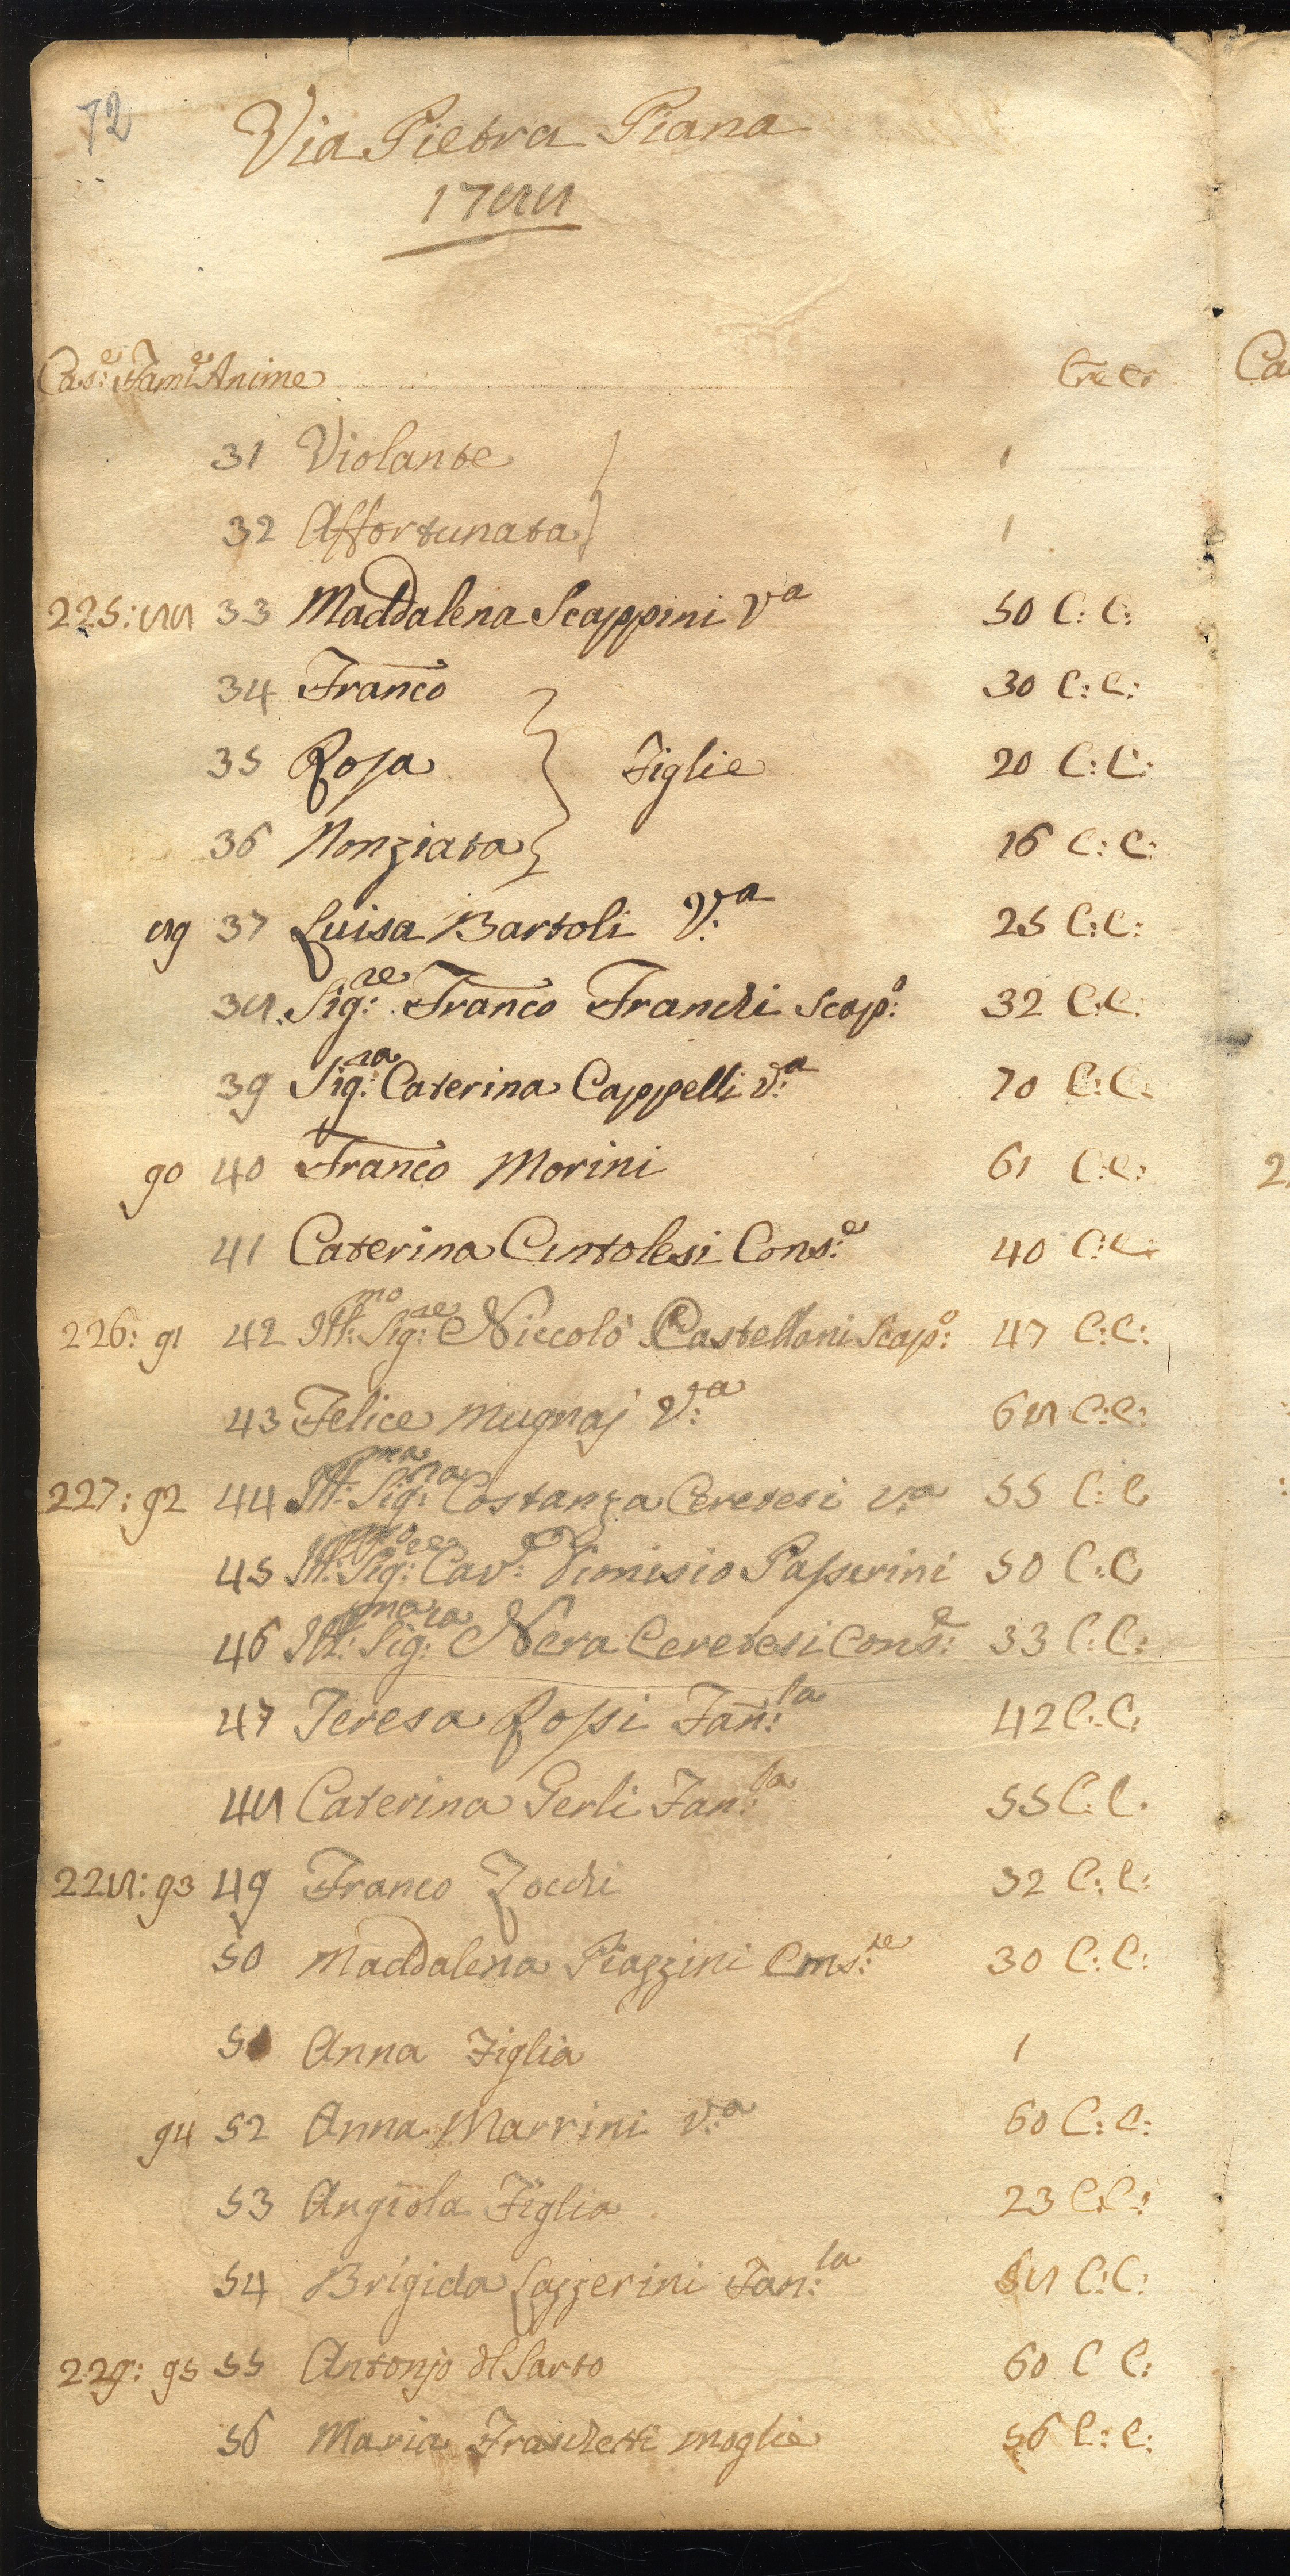 72
Via Pietra Piana
1788
Cas:e Fam:e Anime Cre Co
31 Violante 1
32 Affortunata 1
225: 88 33 Maddalena Scappini Va 50 C: C:
34 Franco 30 C: C:
35 Rosa Figlie 20 C: C:
36 Nonziata 16 C: C:
89 37 Luisa Bartoli V:a 25 C: C:
38 Sig:re Franco Franchi Scap:o 32 C: C:
39 Sig:ra Caterina Cappelli V:a 70 C: C:
90 40 Franco Morini 61 C: C:
41 Caterina Cintolesi Cons:e 40 C: C:
226: 91 42 Ill:mo Sig:re Niccolò Castellani Scap:o 47 C: C:
43 Felice Mugnaj V:a 68 C: C:
227: 92 44 Ill:ma Sig:ra Costanza Ceretesi V:a 55 C: C
45 Ill:mo Sig:re Cav:e Dionisio Passerini 50 C: C
46 Ill:ma Sig:ra Nera Ceretesi Cons:e 33 C: C:
47 Teresa Rossi Fan:la 42 C: C:
48 Caterina Gerli Fan:la 55 C: C.
228: 93 49 Franco Zocchi 32 C: C:
50 Maddalena Piazzini Cons:te 30 C: C:
51 Anna Figlia 1
94 52 Anna Marrini V:a 60 C: C:
53 Angiola Figlia 23 C: C:
54 Brigida Lazzerini Fan:la 58 C: C:
229: 95 55 Antonjo dl Sarto 60 C C:
56 Maria Fraschetti moglie 56 C: C: